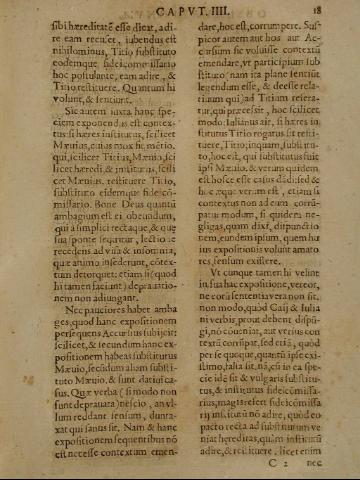 CAPVT. IIII. 18
sibi hæreditatẽ esse dicat, adi-
re eam recuset, iubendus est
nihilominus, Titio substituto
eodemque fideicommissario
hoc postulante, eam adire, &
Titio restituere. Quantum hi
volunt, & sentiunt.
Sic autem iuxta hanc spe-
ciem exponendus est contex-
tus: si hæres institutus, scilicet
Mæuius, cuius mox fit métio,
qui, scilicet Titius, Mæuio, sci
licet hæredi, & instituto, scili
cet Mæuius, restituere Titio,
substituto eidemque fideicõ-
missario. Bone Deus quantũ
ambagium est ei obeundum,
qui à simplici rectaque, & quę
sua sponte sequitur, lectione
recedens ad vim & insomnia,
quæ animo insederunt, cõtex-
tum detorquet: etiam si (quod
hi tamen faciunt) deprauatio-
nem non adiungant.
Nec pauciores habet amba
ges, quod hanc expositionem
persequens Accursius subijcit:
scilicet, & secundum hanc ex-
positionem habeas substitutus
Mæuio, secũdum aliam substi-
tuto Mæuio, & sunt datiui ca-
sus. Quæ verba (si modo non
sunt deprauata) nescio, an vl-
lum reddant sensum, dunta-
xat qui sanus sit. Nam & hanc
expositionem sequentibus nõ
est necesse contextum emen-
dare, hoc est, corrumpere. Sus-
picor autem aut hos aut Ac-
cursium sic voluisse contextũ
emendare, vt participium sub
stitutum nam ita plane sentiũt
legendum esse, & deesse rela-
tiuum qui) ad Titium refera-
tur, qui præcessit, hoc scilicet
modo: Iulianus ait, si hæres in
stitutus Titio rogatus sit resti-
tuere, Titio, inquam, substitu-
to, hoc est, qui substitutus fuit
ipsi Mæuio. & verum quidem
est hosce esse casus dãdi sed &
hoc æque verum est, etiam si
contextus non ad eum corrũ-
patur modum, si quidem ne-
gligas, quam dixi, disiunctio
nem, eundem ipsum, quem hu
ius expositionis volunt amato
res, sensum existere.
Vt cunque tamen hi velint
in sua hac expositione, vereor,
ne eorũ sententia vera non sit,
non modo, quòd Caij & Iulia
ni verbis prout debent disiũ-
gi, nõ cõueniat, aut verius con
textũ corrũpat, sed etiã, quòd
per se quoque, quantũ ipse exi-
stimo, falsa sit. nã, etsi in ea spe-
cie idẽ sit & vulgaris substitu-
tus, & institutus fideicõmissa-
rius, magis refert fideicõmissa-
rij institutũ nõ adire, quòd eo
pacto recta ad substitutum ve-
niat hæreditas, quàm institutũ
adire, & restituere, licet enim
C 2 nec